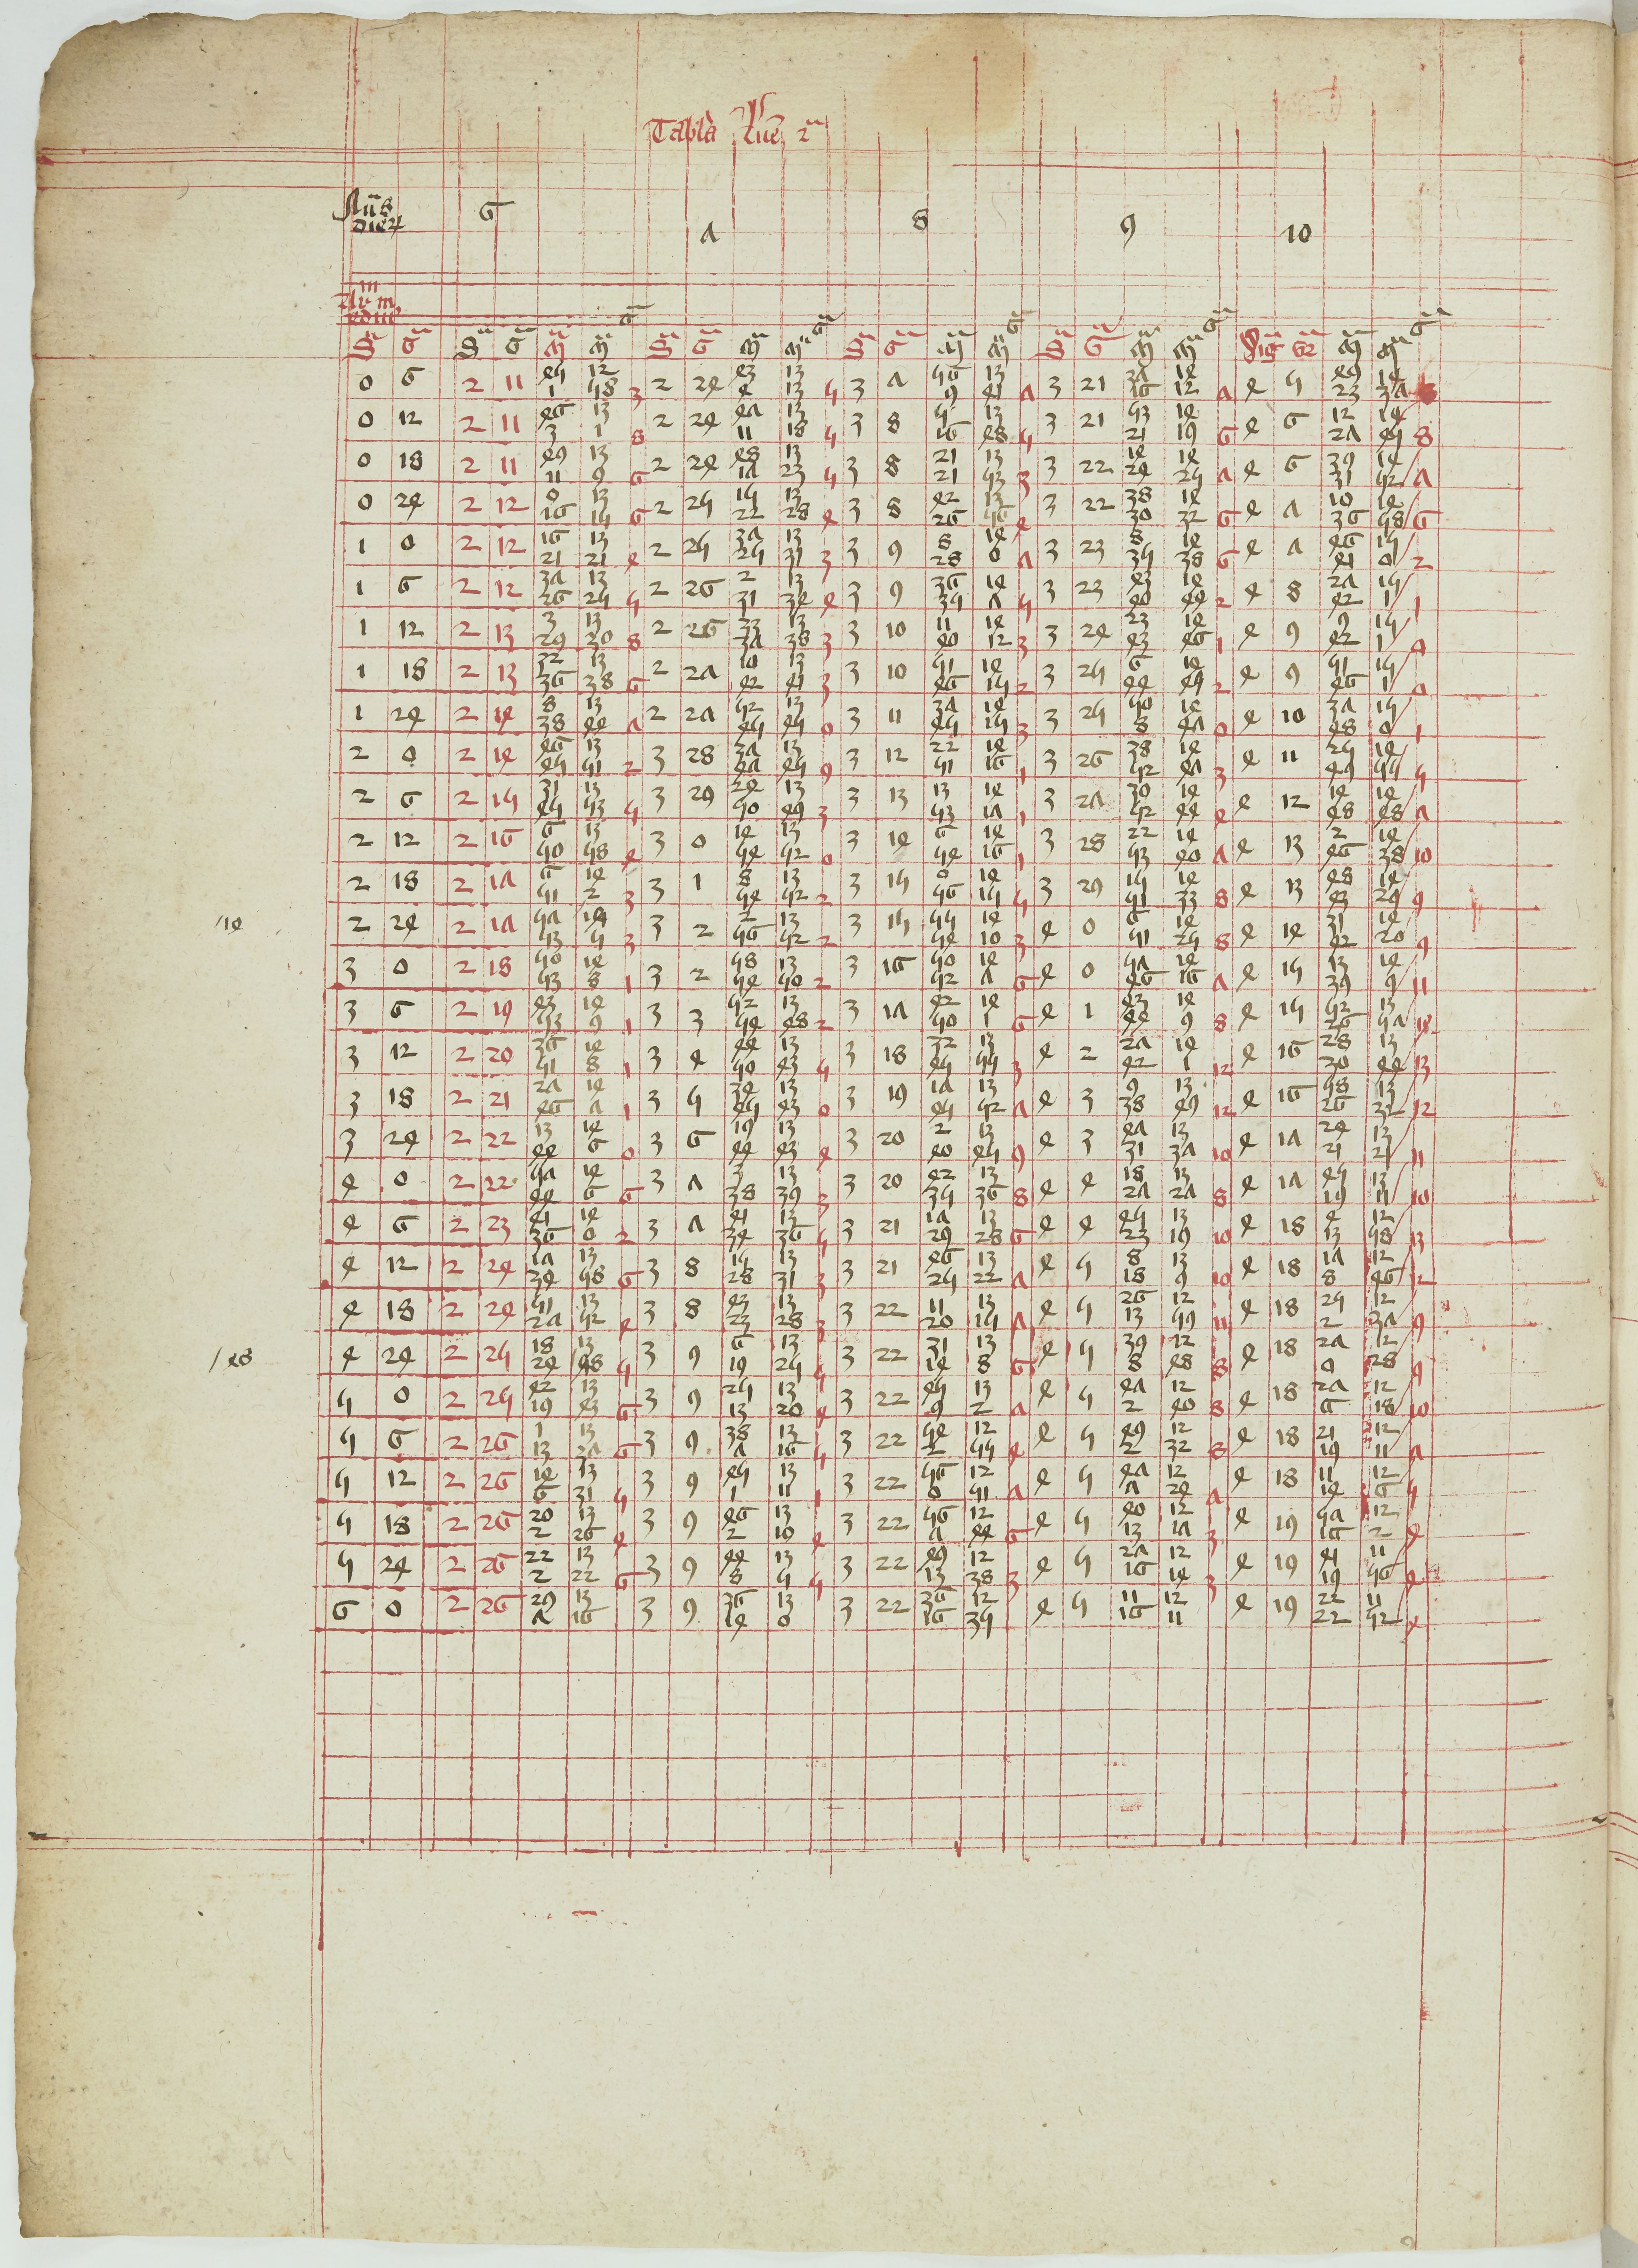 Tabla lune 2ª
Nu͂s dier 6 7 8 9 10
S G S G m m G S G m m G S G m m G S G m m G Sig G2 m m G
0 6 2 11 45 1 12 58 3 2 24 43 4 13 13 5 3 7 56 9 13 41 7 3 21 37 16 14 12 7 4 5 49 23 14 37
0 12 2 11 46 3 13 1 8 2 24 47 11 13 18 5 3 8 5 16 13 48 5 3 21 53 21 14 19 6 4 6 12 27 14 45 8
0 18 2 11 49 11 13 9 6 2 24 48 17 13 23 5 3 8 21 21 13 53 3 3 22 14 24 14 25 7 4 6 39 31 14 52 7
0 24 2 12 0 16 13 15 6 2 25 15 22 13 28 4 3 8 42 26 13 56 4 3 22 38 30 14 32 6 4 7 10 36 14 58 6
1 0 2 12 16 21 13 21 4 2 25 37 25 13 31 3 3 9 8 28 14 0 7 3 23 8 35 14 38 6 4 7 46 41 15 0 2
1 6 2 12 37 26 13 25 5 2 26 2 31 13 34 4 3 9 36 35 14 7 5 3 23 43 40 14 44 2 4 8 27 42 15 1 1
1 12 2 13 3 29 13 30 8 2 26 33 37 13 38 3 3 10 11 40 14 12 3 3 24 23 43 14 46 1 4 9 9 42 15 1 0
1 18 2 13 32 36 13 38 6 2 27 10 42 13 41 3 3 10 51 46 14 15 2 3 25 6 44 14 45 2 4 9 51 46 15 1 0
1 24 2 14 8 38 13 44 7 2 27 52 45 13 45 0 3 11 37 45 14 15 3 3 25 50 8 14 47 0 4 10 37 48 15 0 1
2 0 2 14 46 45 13 51 2 3 28 37 47 13 45 9 3 12 22 51 14 16 1 3 26 38 52 14 47 3 4 11 25 49 14 55 5
2 6 2 15 31 45 13 53 5 3 29 24 50 13 49 3 3 13 13 53 14 17 1 3 27 30 52 14 44 4 4 12 14 48 14 48 7
2 12 2 16 6 50 13 58 4 3 0 14 54 13 52 0 3 14 6 54 14 16 1 3 28 22 53 14 40 7 4 13 2 46 14 38 10
2 18 2 17 6 51 14 2 3 3 1 8 54 13 52 2 3 15 0 56 14 15 5 3 29 15 51 14 33 8 4 13 48 43 14 29 9
/14
2 24 2 17 57 53 14 5 3 3 2 2 56 13 52 2 3 15 55 54 14 10 3 4 0 6 51 14 25 8 4 14 31 42 14 20 9
3 0 2 18 50 53 14 8 1 3 2 58 54 13 50 2 3 16 50 52 14 7 6 4 0 57 46 14 16 7 4 15 13 39 14 9 11
3 6 2 19 43 53 14 9 1 3 3 52 54 13 48 2 3 17 42 50 14 1 6 4 1 43 44 14 9 8 4 15 52 26 13 57 12
3 12 2 20 36 51 14 8 1 3 4 44 50 13 43 5 3 18 32 45 13 55 3 4 2 27 42 14 1 12 4 16 28 30 13 44 13
3 18 2 21 27 46 14 7 1 3 5 34 45 13 43 0 3 19 17 45 13 52 7 4 3 9 38 13 49 12 4 16 58 26 13 32 12
3 24 2 22 13 44 14 6 0 3 6 19 44 13 43 4 3 20 2 40 13 45 9 4 3 47 31 13 37 10 4 17 24 21 13 21 11
4 0 2 22 57 44 14 6 6 3 7 3 38 13 39 3 3 20 42 35 13 36 8 4 4 18 27 13 27 8 4 17 45 19 13 11 10
4 6 2 23 41 36 14 0 2 3 7 41 34 13 36 5 3 21 17 29 13 28 6 4 4 45 23 13 19 10 4 18 4 13 12 58 13
4 12 2 24 17 34 13 58 6 3 8 15 28 13 31 3 3 21 46 25 13 22 7 4 5 8 18 13 9 10 4 18 17 8 12 46 12
4 18 2 24 51 27 13 52 4 3 8 43 23 13 28 3 3 22 11 20 13 15 7 4 5 26 13 12 59 11 4 18 25 2 12 37 9
/48
4 24 2 25 18 24 13 48 5 3 9 6 19 13 25 5 3 22 31 14 13 8 6 4 5 39 8 12 48 8 4 18 27 0 12 28 9
5 0 2 25 42 19 13 43 6 3 9 25 13 13 20 4 3 22 45 9 13 2 7 4 5 47 2 12 40 8 4 18 27 6 12 18 10
5 6 2 26 1 13 13 37 6 3 9 38 7 13 16 5 3 22 54 2 12 55 4 4 5 49 2 12 32 8 4 18 21 19 12 11 7
5 12 2 26 14 6 13 31 5 3 9 45 1 13 11 1 3 22 56 0 12 51 7 4 5 47 7 12 24 7 4 18 11 14 12 6 5
5 18 2 26 20 2 13 26 4 3 9 46 2 13 10 4 3 22 56 7 12 44 6 4 5 40 13 12 17 3 4 19 57 16 12 2 4
5 24 2 26 22 2 13 22 6 3 9 44 8 13 5 5 3 22 49 13 12 38 3 4 5 27 16 12 14 3 4 19 41 19 11 56 4
6 0 2 26 29 7 13 16 3 9 36 14 13 0 3 22 36 16 12 35 4 5 11 16 12 11 4 19 22 22 11 52 4